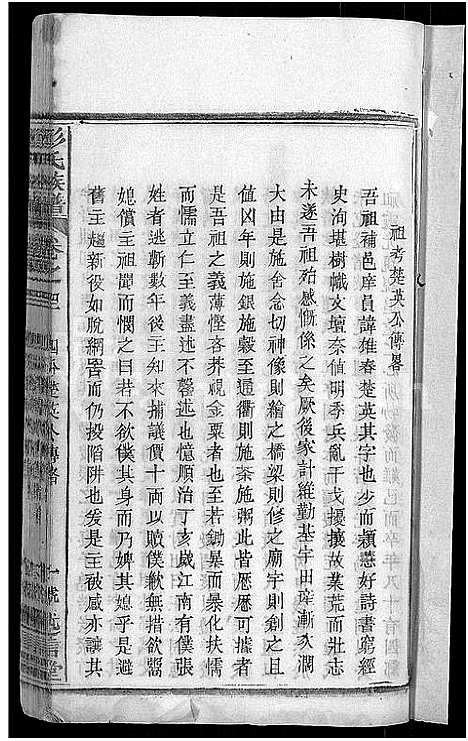 祖考楚英公傳畧
吾祖補邑庠員諱雄春楚英其字也少而穎慧好詩書窮經
史洵堪樹幟文壇奈値明季兵亂干戈擾攘故業荒而壯志
未遂吾祖殆感慨係之矣厥後家計維勤基宇田産漸次濶
大由是施舍念切神像則繪之橋梁則修之廟宇則創之且
值凶年則施銀施穀至通衢則施茶施粥此皆歷歷可據者
是吾祖之義薄慳吝莽視金粟者也至若鋤暴而暴化扶懦
而懦立仁至義盡述不罄述也憶順治丁亥歲江南有僕張
姓者逃靳數年後主知來捕議價十両以贖僕歉無措欲鬻
媳償主祖聞而憫之曰若不欲僕其身而乃婢其媳乎是避
舊主趨新役如脫網罟而仍投陷阱也爰是主被感亦讓其
彭氏族譜
卷之